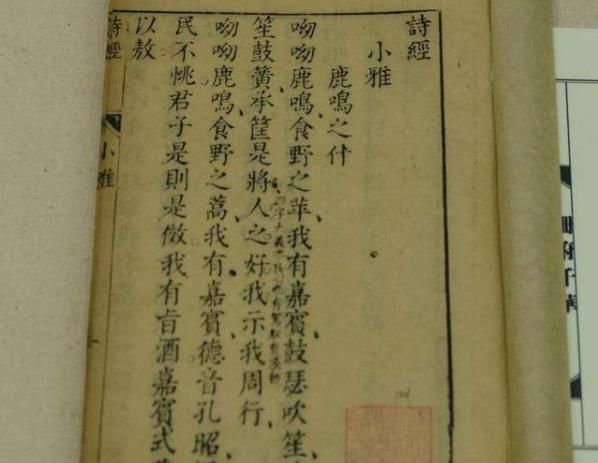 詩經
小雅
鹿鳴之什
呦呦鹿鳴、食野之苹、我有嘉賓、鼓瑟吹笙、
笙鼓簧、承筐是將、人之好我、示我周行、
呦呦鹿鳴、食野之蒿、我有嘉賓、德音孔昭、
民不恌君子是則是傚我有旨酒嘉賓式
以敖
詩經
小雅